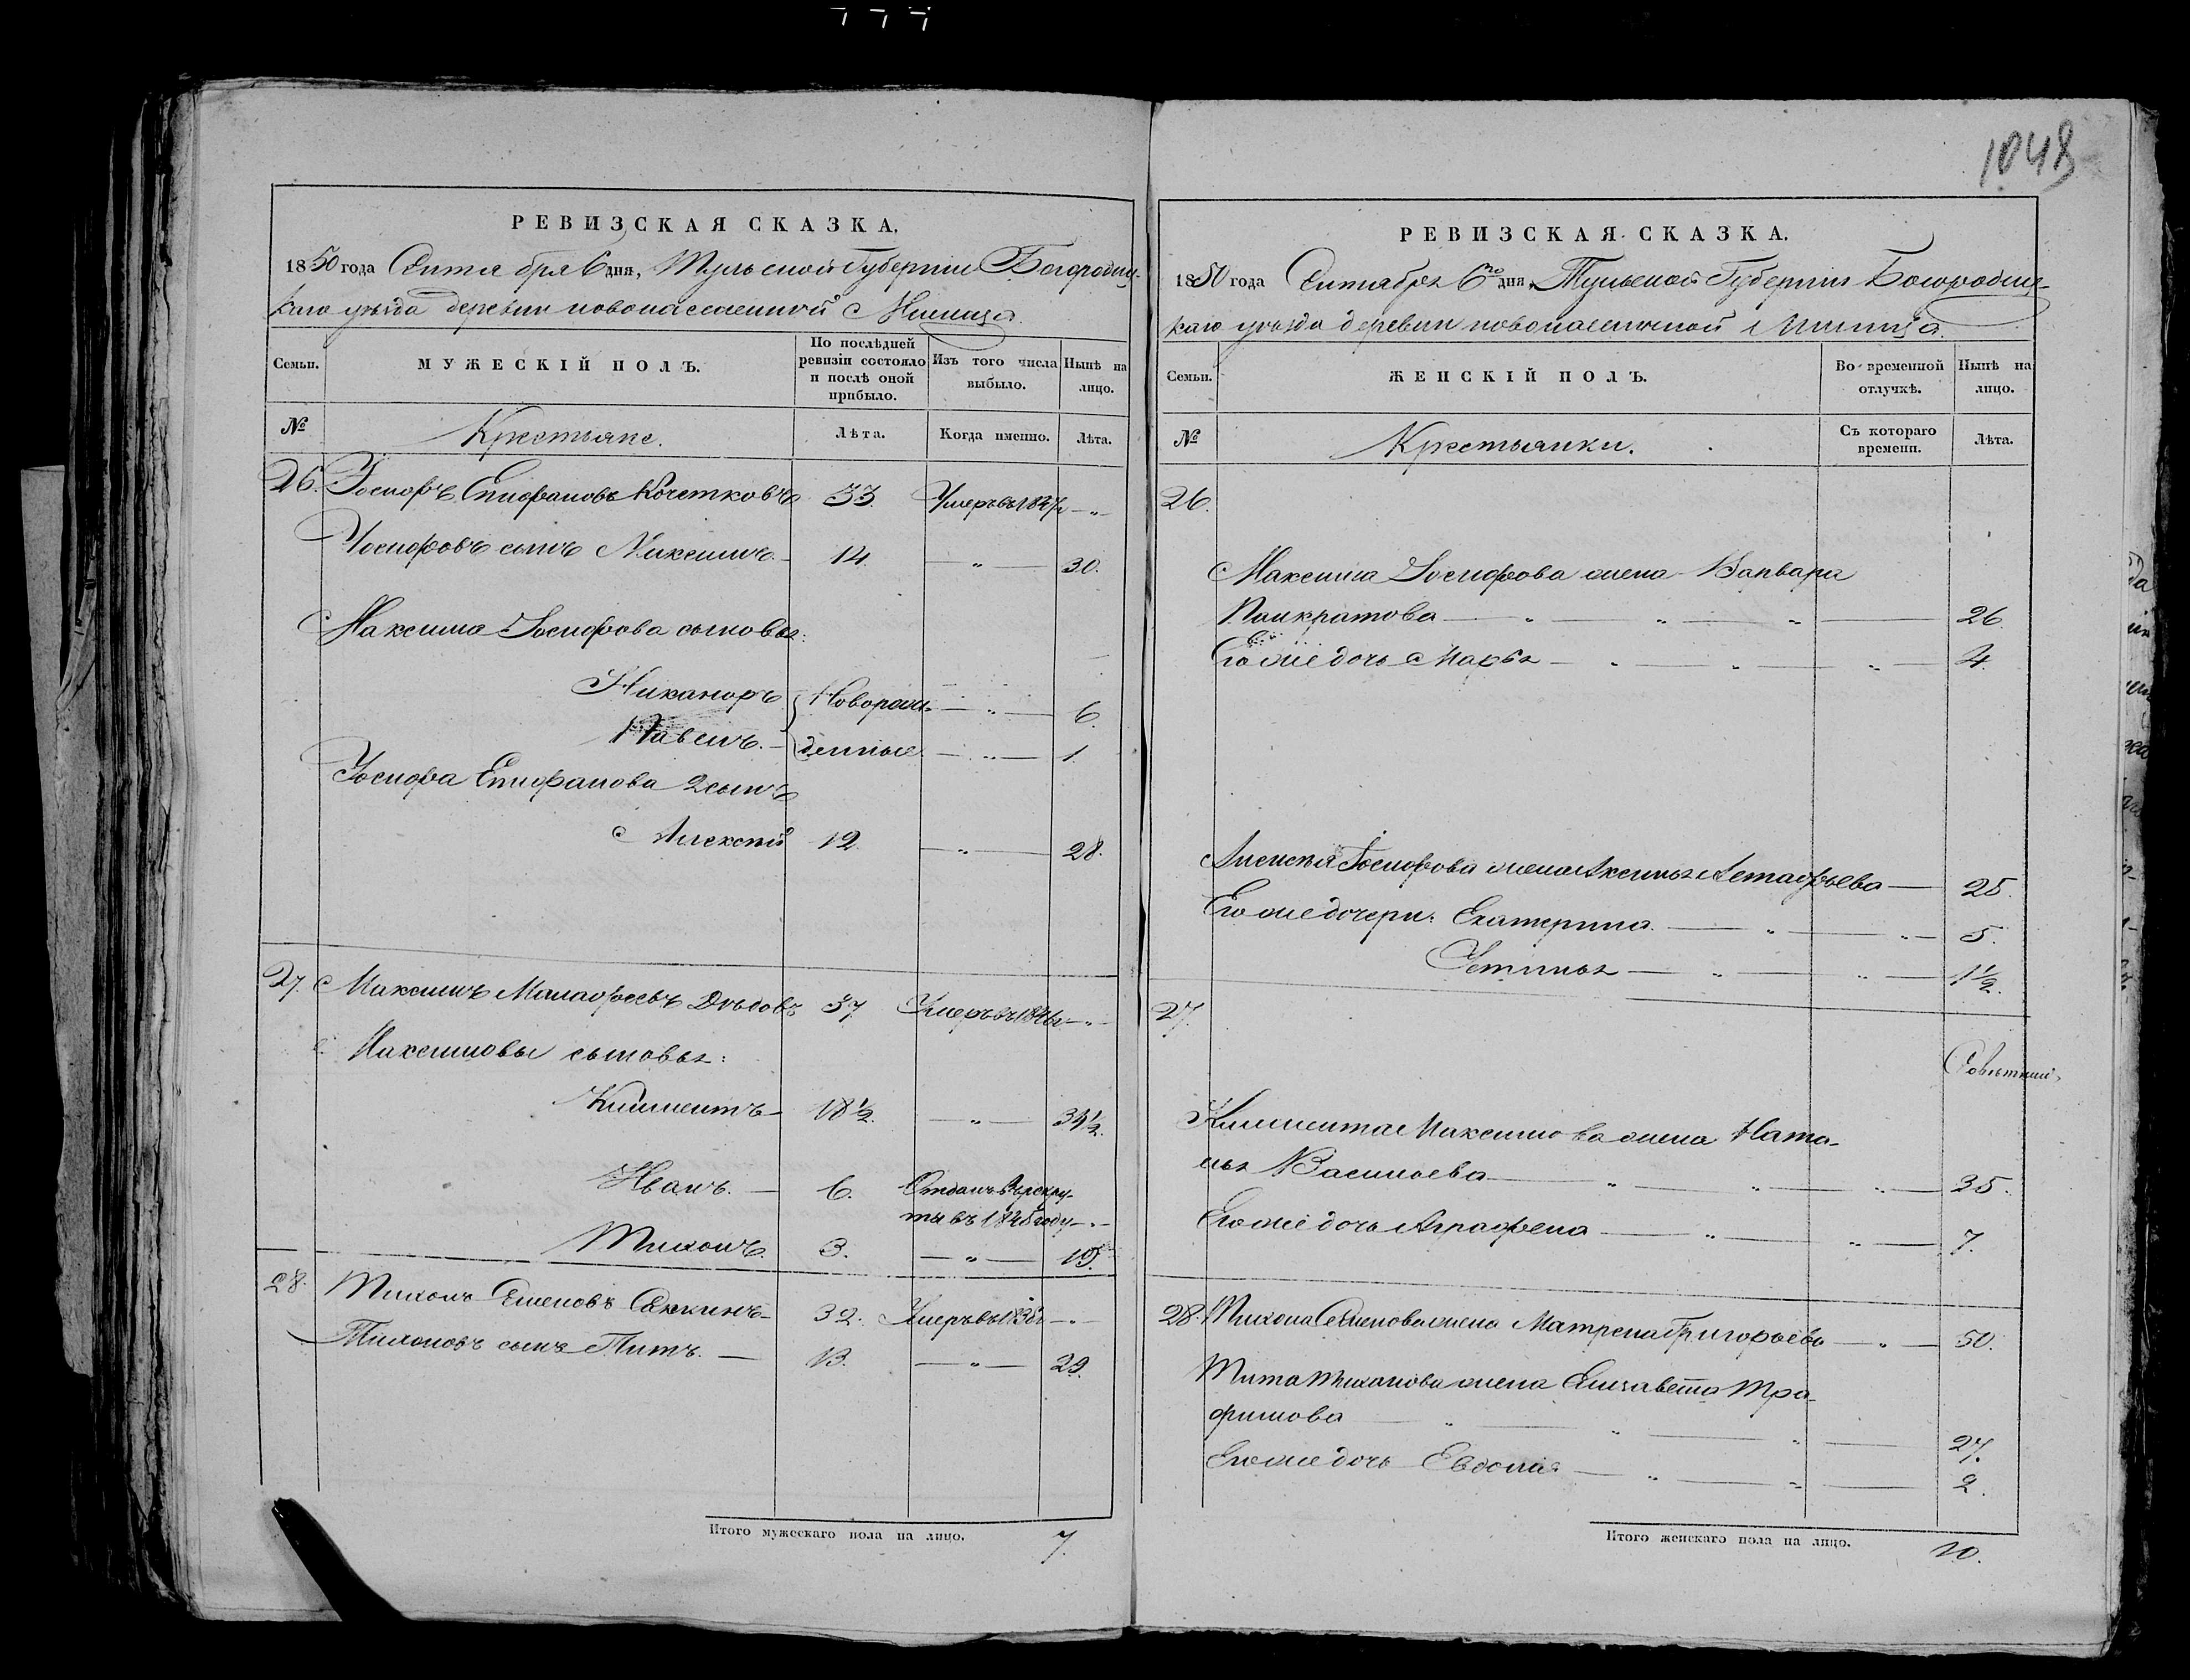 1048
РЕВИЗСКАЯ СКАЗКА.
1850 года Сентября 6 дня, Тульской Губерніи Богородиц-
каго уѣзда деревни новонаселенной
Семьи.
МУЖЕСКІЙ ПОЛЪ.
По послѣдней ревизіи состояло и послѣ оной прибыло.
Изъ того числа выбыло.
Нынѣ на лицо.
№
Крестьяне.
Лѣта.
Когда именно.
Лѣта.
26. Іосифъ Епифановъ Кочетковъ 33. Умеръ въ 1847г — „
Іосифовъ сынъ Максимъ 14. — „ — 30.
Максима Іосифова сыновья:
Никаноръ Новорож- — „ — 6.
Павелъ. — денные — „ — 1.
Іосифа Епифанова 2 сынъ
Алексѣй 12 — „ — 28.
27. Максимъ Малафеевъ Дѣдовъ 37 Умеръ въ 1846г — „ —
Максимовы сыновья:
Климентъ 18½. — „ — 34½.
Иванъ. — 6. Отданъ въ рекру-
ты въ 1845 году — „ —
Тихонъ. 3. — „ — 19.
28. Тихонъ Семеновъ Санкинъ 32. Умеръ въ 1836г — „ —
Тихоновъ сынъ Титъ. — 13. — „ — 29.
Итого мужескаго пола на лицо. 7.
РЕВИЗСКАЯ СКАЗКА.
1850 года Сентября 6го дня, Тульской Губерніи Богородиц-
каго уѣзда деревни новонаселенной
Семьи.
ЖЕНСКІЙ ПОЛЪ.
Во временной отлучкѣ.
Нынѣ на лицо.
№
Крестьянки.
Съ котораго времени.
Лѣта.
26.
Максима Іосифова жена Варвара
Панкратова — „ — „ — „ — 26
Его же дочь Марфа — „ — „ — „ — 4.
Алексѣя Іосифова жена Аксинья Астафьева — 25.
Его же дочери: Екатерина. — „ — „ — 5.
Устинья — „ — „ — 1½.
27.
Климента Максимова жена Ната-
лья Васильева — „ — „ — „ — 35.
Его же дочь Аграфена — „ — „ — 7.
28. Тихона Семенова жена Матрена Григорьева — „ — 50.
Тита Тихонова жена Елизавета Тро-
фимова — „ — „ — „ — 27.
Его же дочь Евдокія — „ — „ — 2.
Итого женскаго пола на лицо. 10.